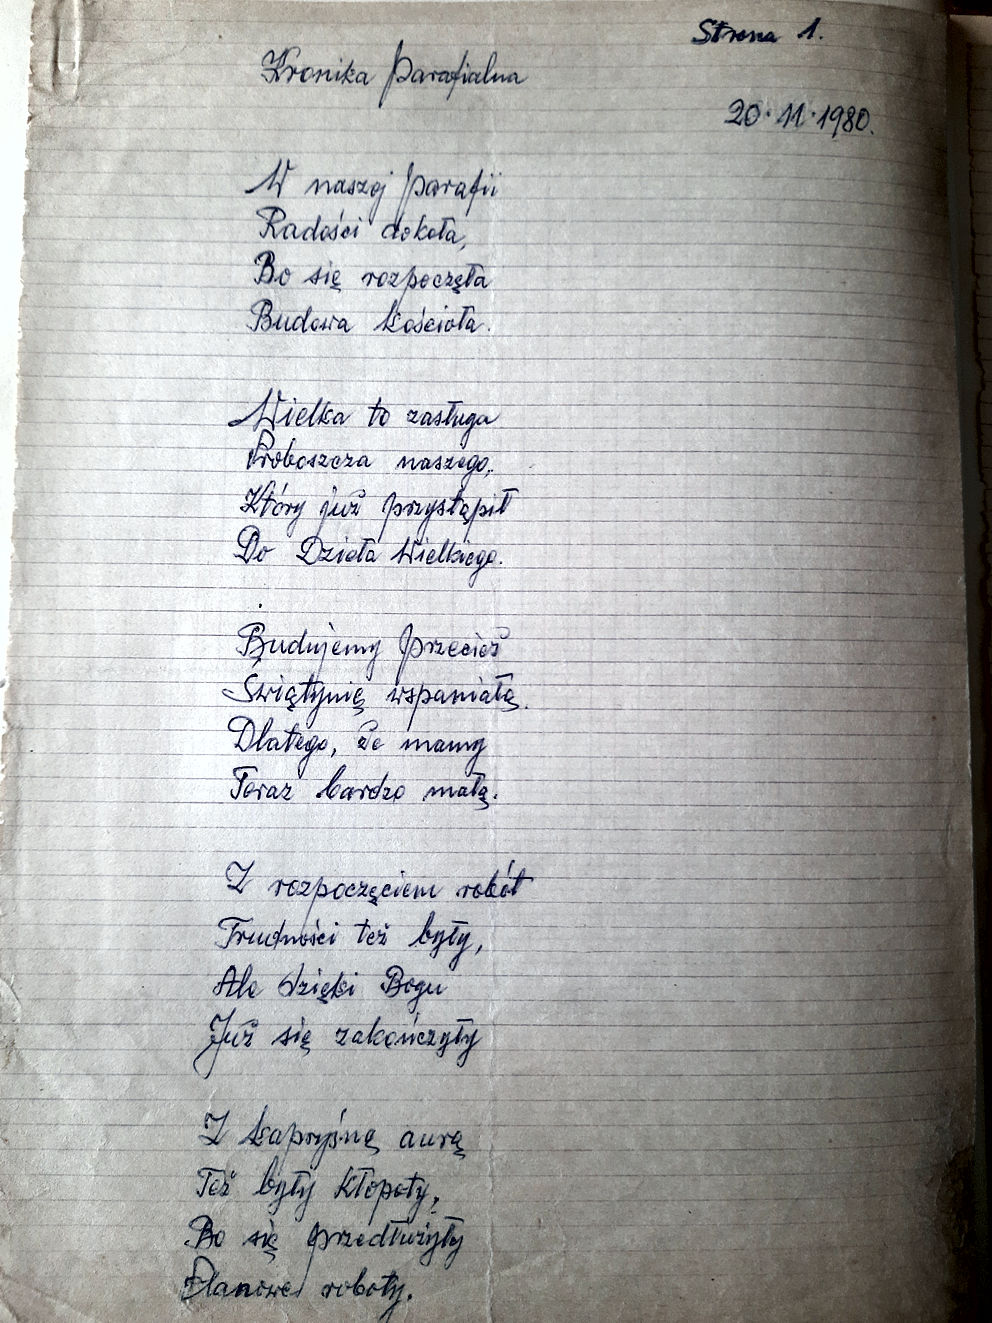 Strona 1.
Kronika Parafialna
20.11.1980.
W naszej parafii
Radości dokoła,
Bo się rozpoczęła
Budowa kościoła.
Wielka to zasługa
Proboszcza naszego,
Który już przystąpił
Do Dzieła Wielkiego.
Budujemy przecież
Świątynię wspaniałą.
Dlatego, że mamy
Teraz bardzo małą.
Z rozpoczęciem robót
Trudności też były,
Ale dzięki Bogu
Już się zakończyły
Z kapryśną aurą
Też były kłopoty,
Bo się przedłużyły
Planowe roboty.